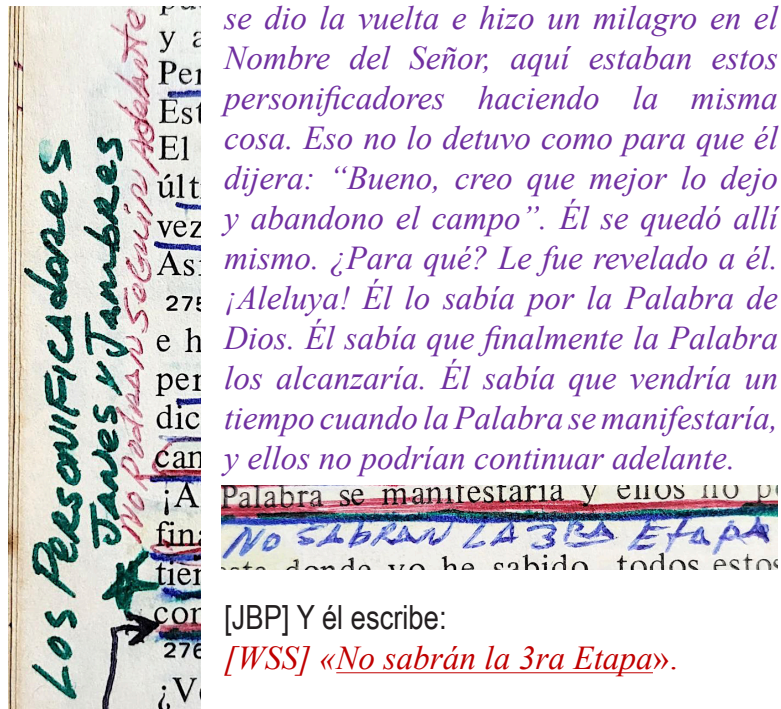 Los Personificadores
Janes y Jambres
No Podran Seguir Adelante
y a
Per
Est
El
últ
vez
As
275
e h
per
dic
can
¡A
fina
tier
con
276
¿V
se dio la vuelta e hizo un milagro en el
Nombre del Señor, aquí estaban estos
personificadores haciendo la misma
cosa. Eso no lo detuvo como para que él
dijera: “Bueno, creo que mejor lo dejo
y abandono el campo”. Él se quedó allí
mismo. ¿Para qué? Le fue revelado a él.
¡Aleluya! Él lo sabía por la Palabra de
Dios. Él sabía que finalmente la Palabra
los alcanzaría. Él sabía que vendría un
tiempo cuando la Palabra se manifestaría,
y ellos no podrían continuar adelante.
Palabra se manifestaría y ellos no p
No SABRAN LA 3RA EtApA
donde yo he sabido, todos estos
[JBP] Y él escribe:
[WSS] «No sabrán la 3ra Etapa».